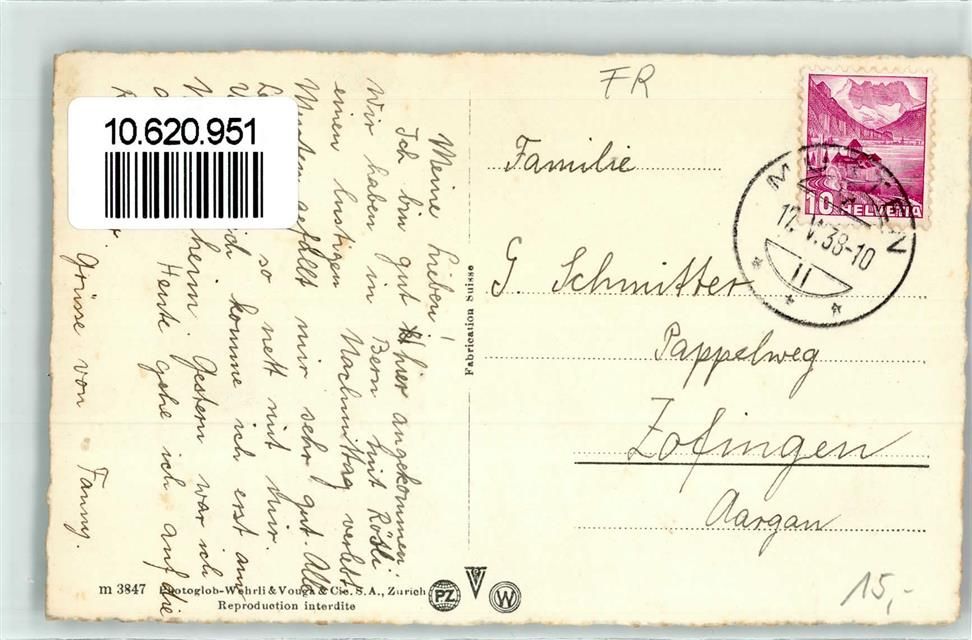 10.620.951
Meine Lieben!
Ich bin gut hier angekommen.
Wir haben in Bern mit Rösli
einen lustigen Nachmittag verlebt
gefällt mir sehr gut
so nett mit mir.
komme ich erst am
heim. Gestern war ich
Heute gehe ich auf die
Grüsse von Fanny.
FR
Familie
G. Schmitter
Pappelweg
Zofingen
Aargau
10 HELVETIA
MURTEN
17.V.38-10
11
Fabrication Suisse
m 3847 Photoglob-Wehrli & Vouga & Cie. S.A., Zurich
Reproduction interdite
PZ
V
W
15,-